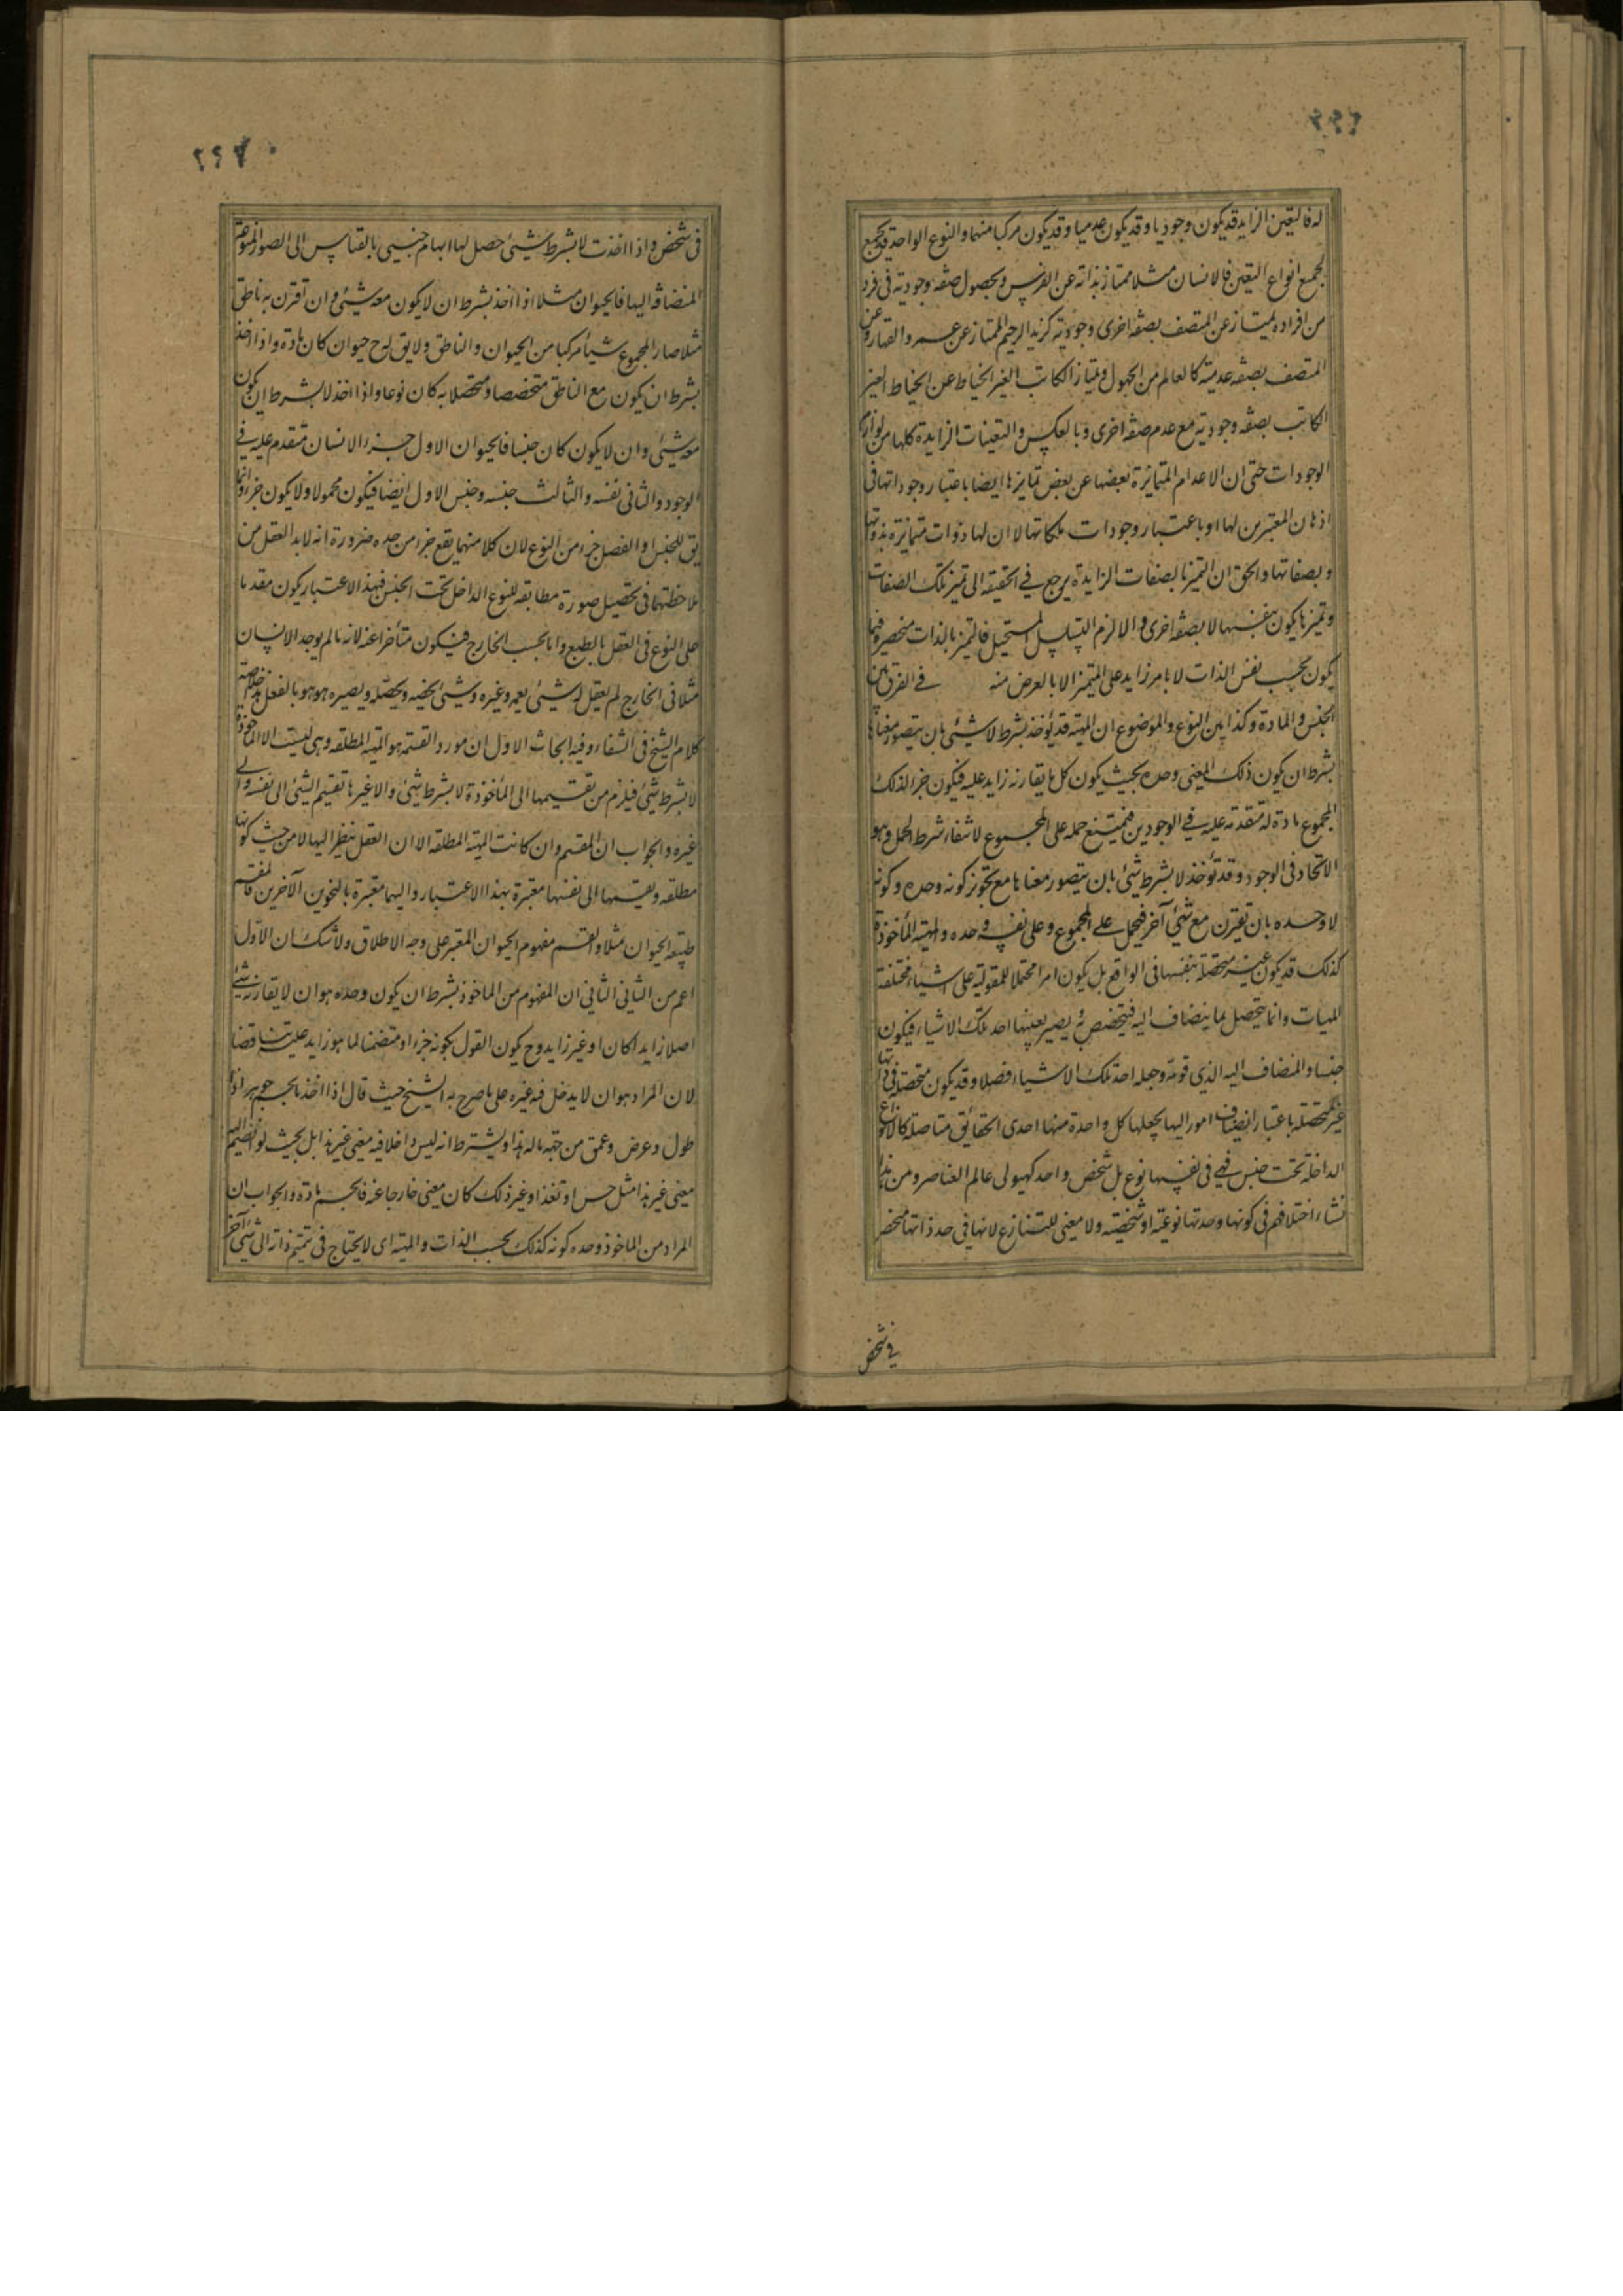 ٢٢٦
له فالتعين الزايد قد يكون وجوديا وقد يكون عدميا وقد يكون مركبا منهما والنوع الواحد قد يجمع
لجميع انواع التعين فالانسان مثلا ممتاز بذاته عن الفرس وبحصول صفه وجودية فى فرد
من افراده يمتاز عن المتصف بصفه اخرى وجودية كزيد الرحيم الممتاز عن عمرو القهار وعن
المتصف بصفه عدمية كالعالم من الجهول ويمتاز الكاتب الغير الخياط عن الخياط الغير
الكاتب بصفه وجودية مع عدم صفه اخرى وبالعكس والتعينات الزايدة كلها من لوازم
الوجودات حتى ان الاعدام المتمايزة بعضها عن بعض تمايزها ايضا باعتبار وجوداتها فى
اذهان المعتبرين لها او باعتبار وجودات ملكاتها لا ان لها ذوات متمايزة بذواتها
وبصفاتها والحق ان التميز بالصفات الزايدة يرجع فى الحقيقه الى تميز تلك الصفات
وتميزها يكون بنفسها لا بصفه اخرى والا لزم التسلسل المستحيل فالتميز بالذات منحصر فيما
يكون بحسب نفس الذات لا بامر زايد على المتميز الا بالعرض منه فى الفرق بين
الجنس والمادة وكذا بين النوع والموضوع ان المهية قد يؤخذ بشرط لا شيئ بان يتصور معناها
بشرط ان يكون ذلك المعنى وحده بحيث يكون كل ما يقارنه زايد عليه فيكون جزء الذلك
المجموع مادة له متقدمه عليه فى الوجودين فيمتنع حمله على المجموع لانتفاء شرط الحمل وهو
الاتحاد فى الوجود وقد تؤخذ لا بشرط شئ بان يتصور معناها مع تجويز كونه وحده وكونه
لا وحده بان يقترن مع شئ آخر فيحمل على المجموع وعلى نفسه وحده والمهية المأخوذة
كذلك قد يكون غير متحصلة بنفسها فى الواقع بل يكون امرا محتملا للمقولية على اشياء مختلفة
المهيات وانما يتحصل بما ينضاف اليه فيتخصص به ويصير بعينها احد تلك الاشياء فيكون
جنسا والمنضاف اليه الذى قومه وجعله احد تلك الاشياء فصلا وقد يكون متحصلة فى ذاتها
غير متحصلة باعتبار انضياف امور اليها يجعلها كل واحدة منها احدى الحقائق متاصلة كالانواع
الداخلة تحت جنس فهى فى نفسها نوع بل شخص واحد كهيولى عالم العناصر ومن هذا
نشاء اختلافهم فى كونها وحدتها نوعية او شخصية ولا معنى للتنازع لانها فى حد ذاتها منحصر
فى شخص
٢٢٧
فى شخص واذا اخذت لا بشرط شيئ حصل لها ابهام جنسى بالقياس الى الصور المنوعة
المنضافة اليها فالحيوان مثلا اذا اخذ بشرط ان لا يكون معه شيئ وان اقترن به ناطق
مثلا صار المجموع شيأ مركبا من الحيوان والناطق ولا يق له ح حيوان كان مادة واذا اخذ
بشرط ان يكون مع الناطق متخصصا ومتحصلا به كان نوعا واذا اخذ لا بشرط ان يكون
معه شيئ وان لا يكون كان جنسا فالحيوان الاول جزء الانسان متقدم عليه فى
الوجود والثانى نفسه والثالث جنسه وجنس الاول ايضا فيكون محمولا ولا يكون جزءا وانما
يق للجنس والفصل جزء من النوع لان كلا منهما يقع جزء من حده ضرورة انه لا بد للعقل من
ملاحظتهما فى تحصيل صورة مطابقه للنوع الداخل تحت الجنس فبهذا الاعتبار يكون مقدما
على النوع فى العقل بالطبع واما بحسب الخارج فيكون متأخرا عنه لانه ما لم يوجد الانسان
مثلا فى الخارج لم يعقل له شيئ يعمه وغيره وشيئ يخصه ويحصله ويصيره هو هو بالفعل هذا خلاصة
كلام الشيخ فى الشفاء وفيه ابحاث الاول ان مورد القسمة هو المهية المطلقه وهى ليست الا المأخوذة
لا بشرط شئ فيلزم من تقسيمها الى المأخوذة لا بشرط شئ والا غيرها تقسيم الشئ الى نفسه والى
غيره والجواب ان المقسم وان كانت المهية المطلقه الا ان العقل ينظر اليها لا من حيث كونها
مطلقه ويقسمها الى نفسها معتبرة بهذا الاعتبار واليها معتبرة بالنحوين الآخرين فالمقسم
طبيعه الحيوان مثلا والقسم مفهوم الحيوان المعتبر على وجه الاطلاق ولا شك ان الاول
اعم من الثانى الثانى ان المفهوم من الماخوذ بشرط ان يكون وحده هو ان لا يقارنه شئ
اصلا زايدا كان او غير زايد وح يكون القول بكونه جزءا و متضمنا لما هو زايد عليه تناقضا
لان المراد هو ان لا يدخل فيه غيره على ما صرح به الشيخ حيث قال اذا اخذ بالجسم جوهرا ذا
طول وعرض وعمق من جهة ماله هذا ويشترط انه ليس داخلا فيه معنى غير هذا بل بحيث لو انضم اليه
معنى غير هذا مثل حس او تغذ او غير ذلك كان معنى خارجا عنه فالجسم مادة والجواب ان
المراد من الماخوذ وحده كونه كذلك بحسب الذات والمهية اى لا يحتاج فى تتميم ذاته الى شئ آخر